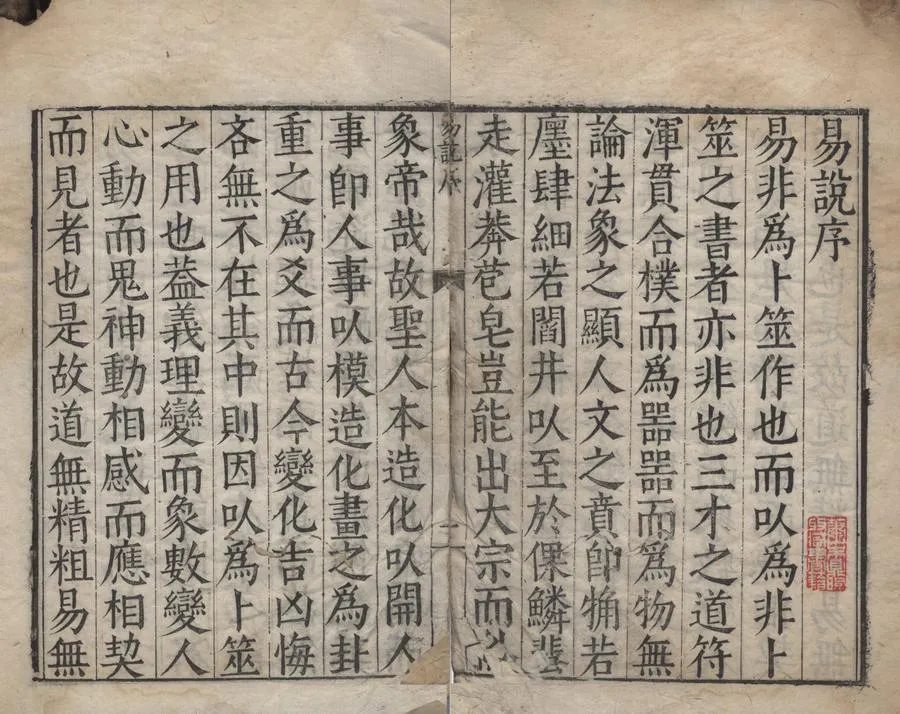 易說序
易非爲卜筮作也而以爲非卜
筮之書者亦非也三才之道符
渾貫合樸而爲噐噐而爲物無
論法象之顯人文之賁卽觕若
廛肆細若閻井以至於倮鱗蜚
走灌莾苞皂豈能出大宗而
易說序
象帝哉故聖人本造化以開人
事卽人事以模造化畫之爲卦
重之爲爻而古今變化吉凶悔
吝無不在其中則因以爲卜筮
之用也葢義理變而象數變人
心動而鬼神動相感而應相契
而見者也是故道無精粗易無